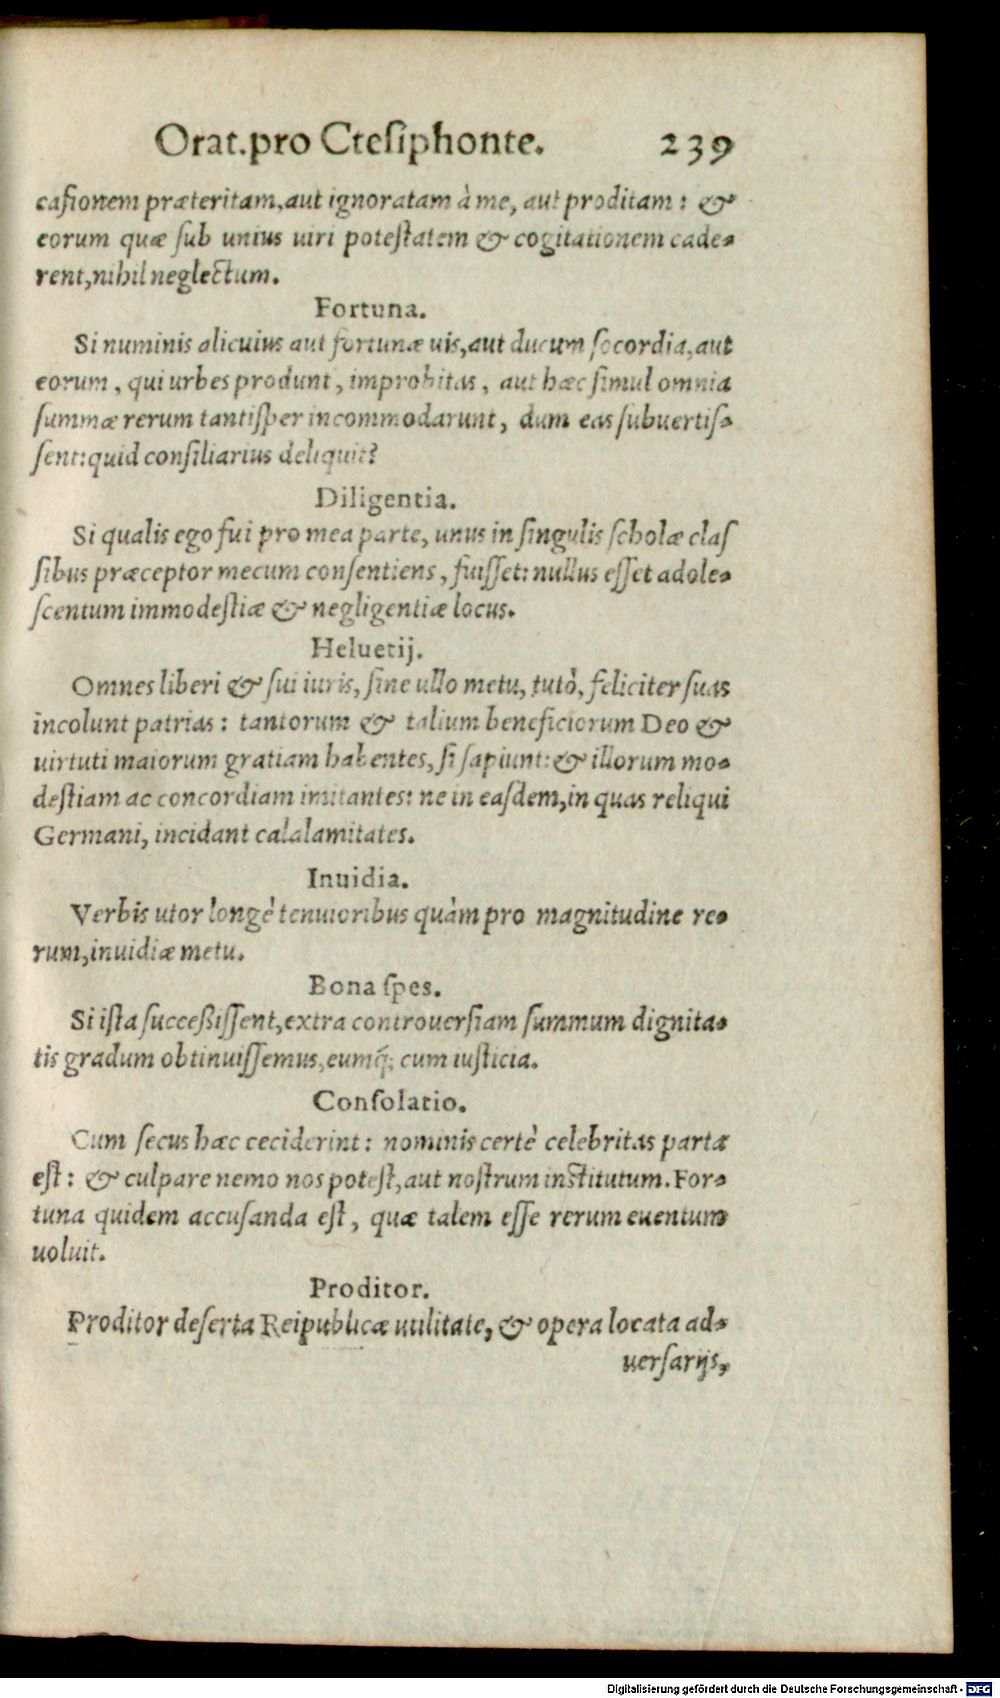 Orat. pro Ctesiphonte. 239
casionem præteritam, aut ignoratam à me, aut proditam: &
eorum quæ sub unius uiri potestatem & cogitationem cade-
rent, nihil neglectum.
Fortuna.
Si numinis alicuius aut fortunæ uis, aut ducum socordia, aut
eorum, qui urbes produnt, improbitas, aut hæc simul omnia
summæ rerum tantisper incommodarunt, dum eas subuertis-
sent: quid consiliarius deliquit?
Diligentia.
Si qualis ego fui pro mea parte, unus in singulis scholæ clas
sibus præceptor mecum consentiens, fuisset: nullus esset adole-
scentum immodestiæ & negligentiæ locus.
Heluetij.
Omnes liberi & sui iuris, sine ullo metu, tutò, feliciter suas
incolunt patrias: tantorum & talium beneficiorum Deo &
uirtuti maiorum gratiam habentes, si sapiunt: & illorum mo-
destiam ac concordiam imitantes: ne in easdem, in quas reliqui
Germani, incidant calalamitates.
Inuidia.
Verbis utor longè tenuioribus quàm pro magnitudine re-
rum, inuidiæ metu.
Bona spes.
Si ista successissent, extra controuersiam summum dignita-
tis gradum obtinuissemus, eumq́; cum iusticia.
Consolatio.
Cum secus hæc ceciderint: nominis certè celebritas parta
est: & culpare nemo nos potest, aut nostrum institutum. For-
tuna quidem accusanda est, quæ talem esse rerum euentum
uoluit.
Proditor.
Proditor deserta Reipublicæ utilitate, & opera locata ad-
uersarijs,
Digitalisierung gefördert durch die Deutsche Forschungsgemeinschaft - DFG